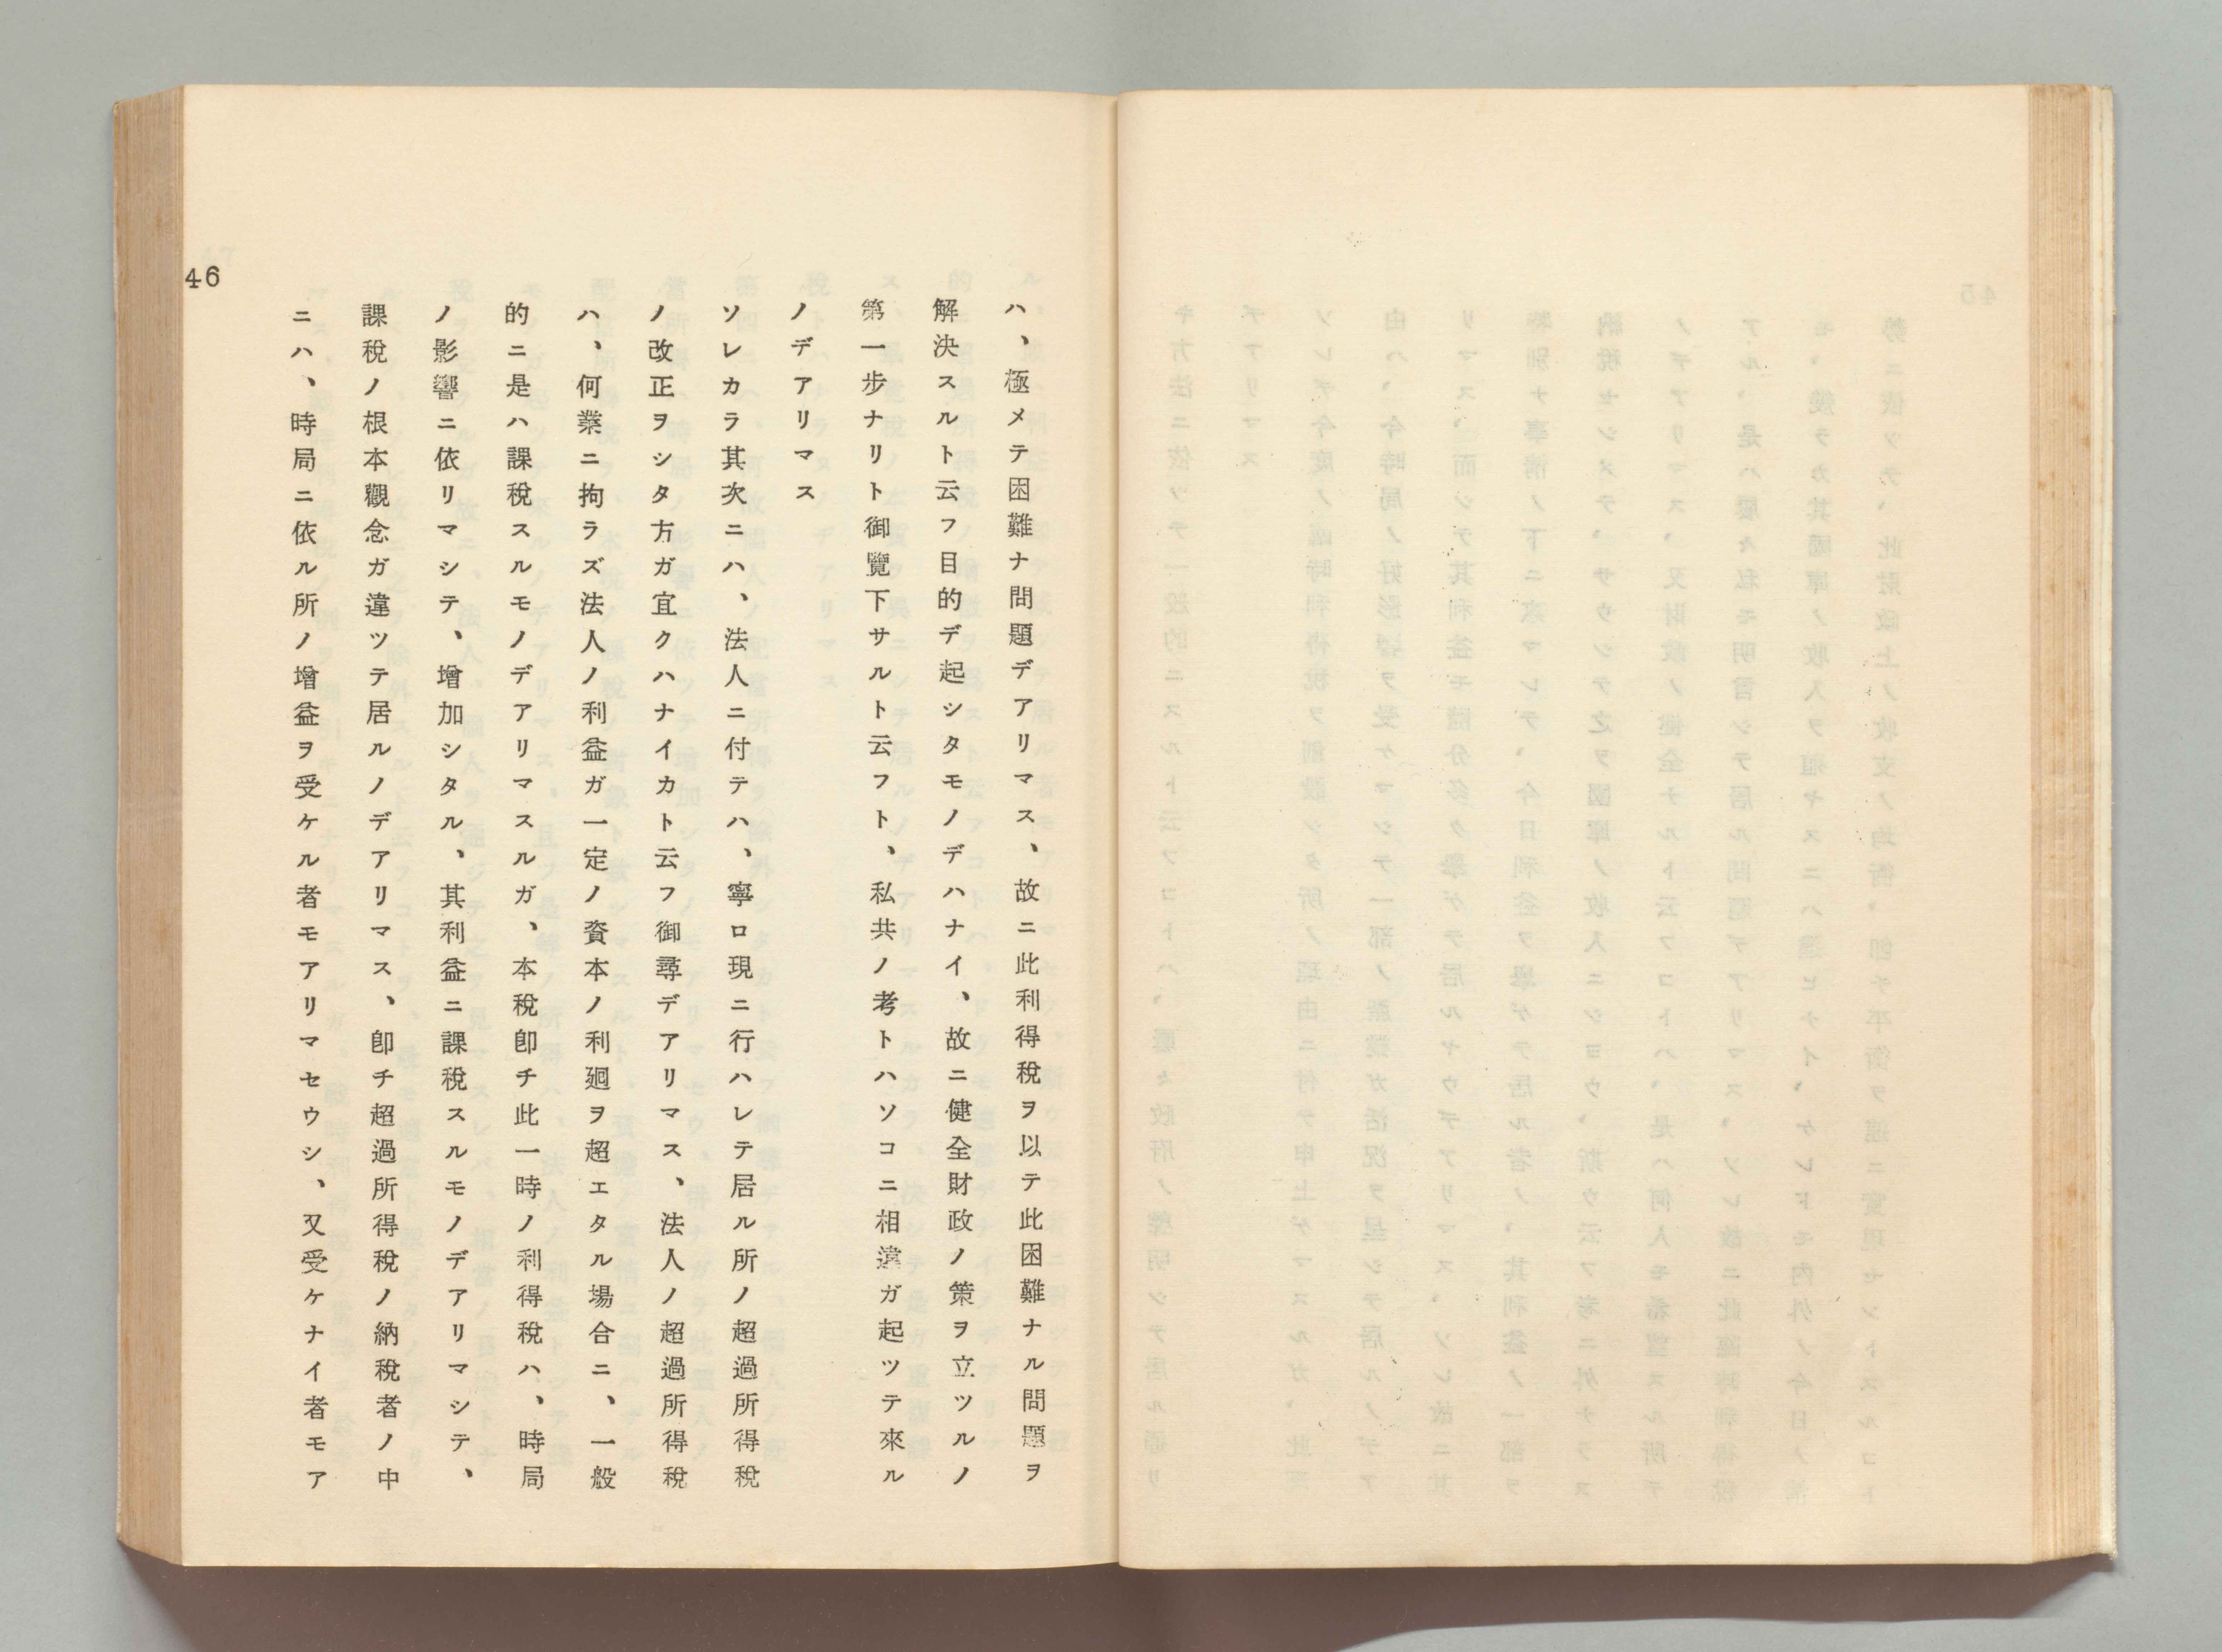 ハ、極メテ困難ナ問題デアリマス、故ニ此利得稅ヲ以テ此困難ナル問題ヲ
解決スルト云フ目的デ起シタモノデハナイ、故ニ健全財政ノ策ヲ立ツルノ
第一步ナリト御覽下サルト云フト、私共ノ考トハソコニ相違ガ起ツテ來ル
ノデアリマス
ソレカラ其次ニハ、法人ニ付テハ、寧ロ現ニ行ハレテ居ル所ノ超過所得稅
ノ改正ヲシタ方ガ宜クハナイカト云フ御尋デアリマス、法人ノ超過所得稅
ハ、何業ニ拘ラズ法人ノ利益ガ一定ノ資本ノ利廻ヲ超エタル場合ニ、一般
的ニ是ハ課稅スルモノデアリマスルガ、本稅卽チ此一時ノ利得稅ハ、時局
ノ影響ニ依リマシテ、增加シタル、其利益ニ課稅スルモノデアリマシテ、
課稅ノ根本觀念ガ違ツテ居ルノデアリマス、卽チ超過所得稅ノ納稅者ノ中
ニハ、時局ニ依ル所ノ增益ヲ受ケル者モアリマセウシ、又受ケナイ者モア
46